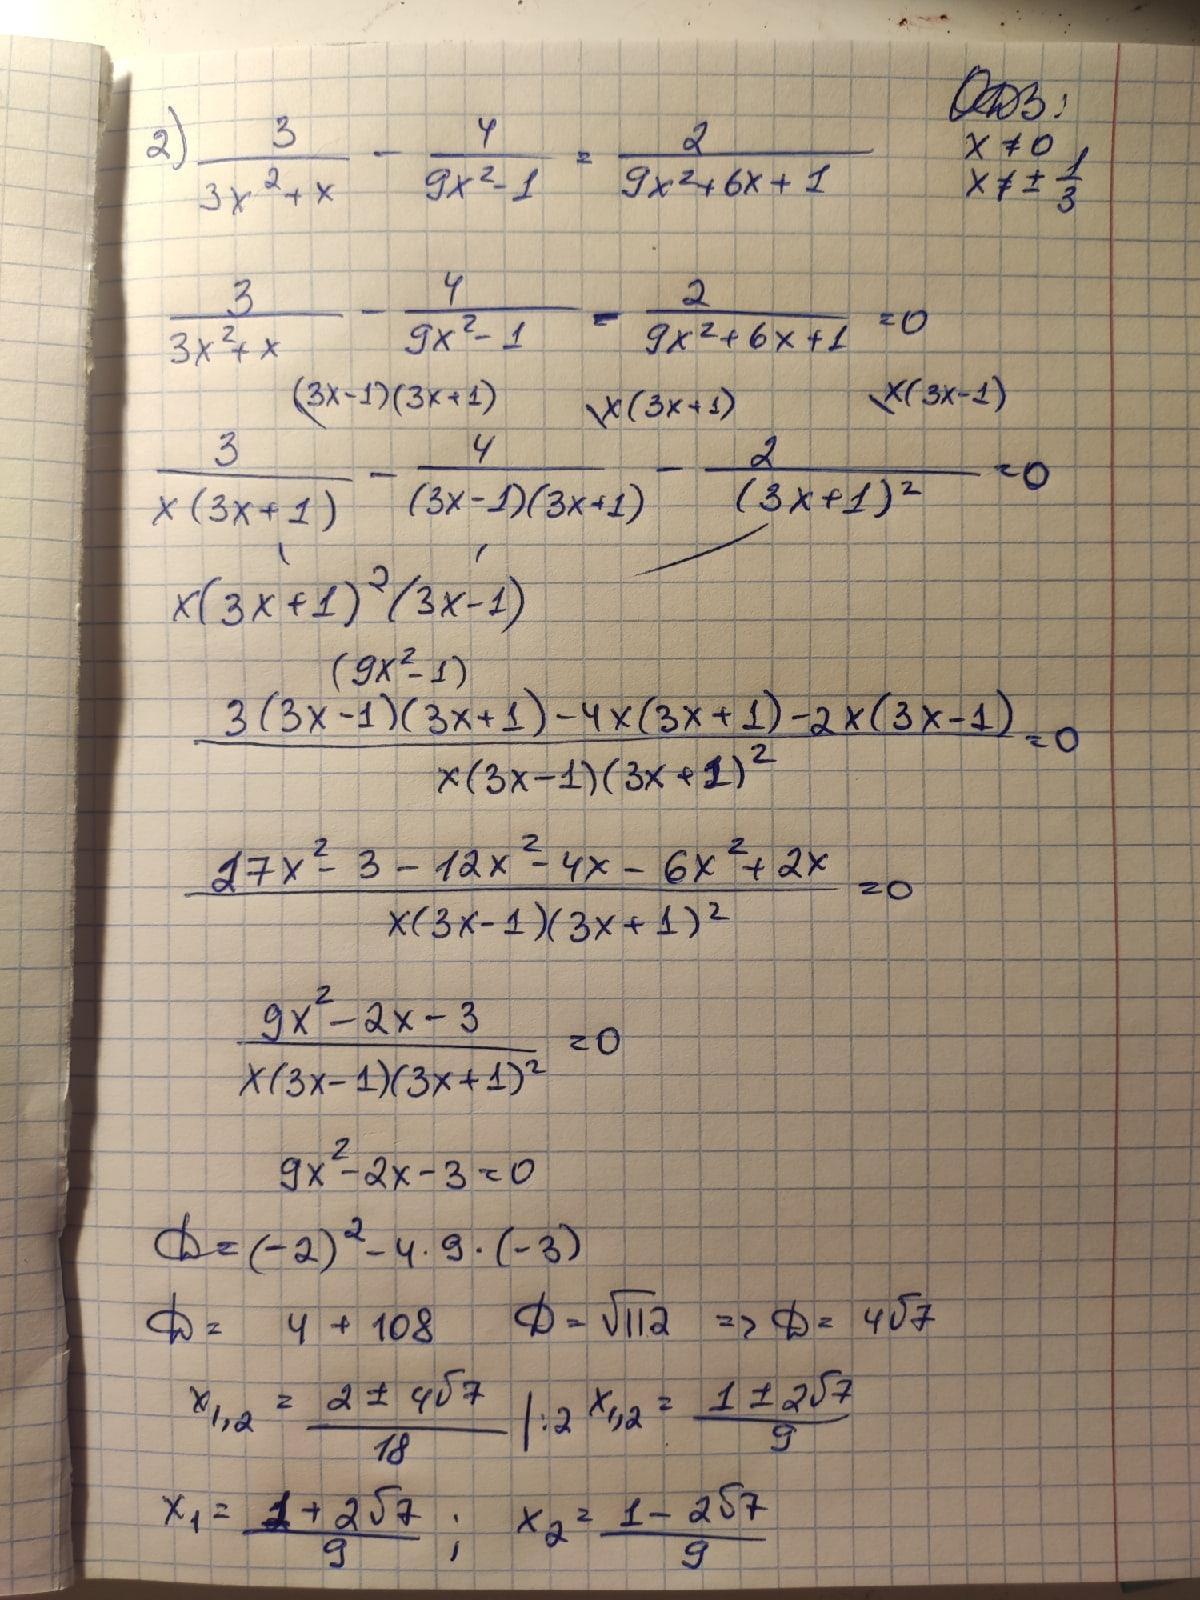 ОДЗ:
x ≠ 0
x ≠ ± 1/3
2) 3/(3x² + x) - 4/(9x² - 1) = 2/(9x² + 6x + 1)
3/(3x² + x) - 4/(9x² - 1) - 2/(9x² + 6x + 1) = 0
(3x-1)(3x+1) x(3x+1) x(3x-1)
3/(x(3x+1)) - 4/((3x-1)(3x+1)) - 2/(3x+1)² = 0
x(3x+1)²(3x-1)
(9x² - 1)
(3(3x-1)(3x+1) - 4x(3x+1) - 2x(3x-1))/(x(3x-1)(3x+1)²) = 0
(27x² - 3 - 12x² - 4x - 6x² + 2x)/(x(3x-1)(3x+1)²) = 0
(9x² - 2x - 3)/(x(3x-1)(3x+1)²) = 0
9x² - 2x - 3 = 0
D = (-2)² - 4 · 9 · (-3)
D = 4 + 108 D = √112 => D = 4√7
x₁,₂ = (2 ± 4√7)/18 | :2 x₁,₂ = (1 ± 2√7)/9
x₁ = (1 + 2√7)/9 ; x₂ = (1 - 2√7)/9